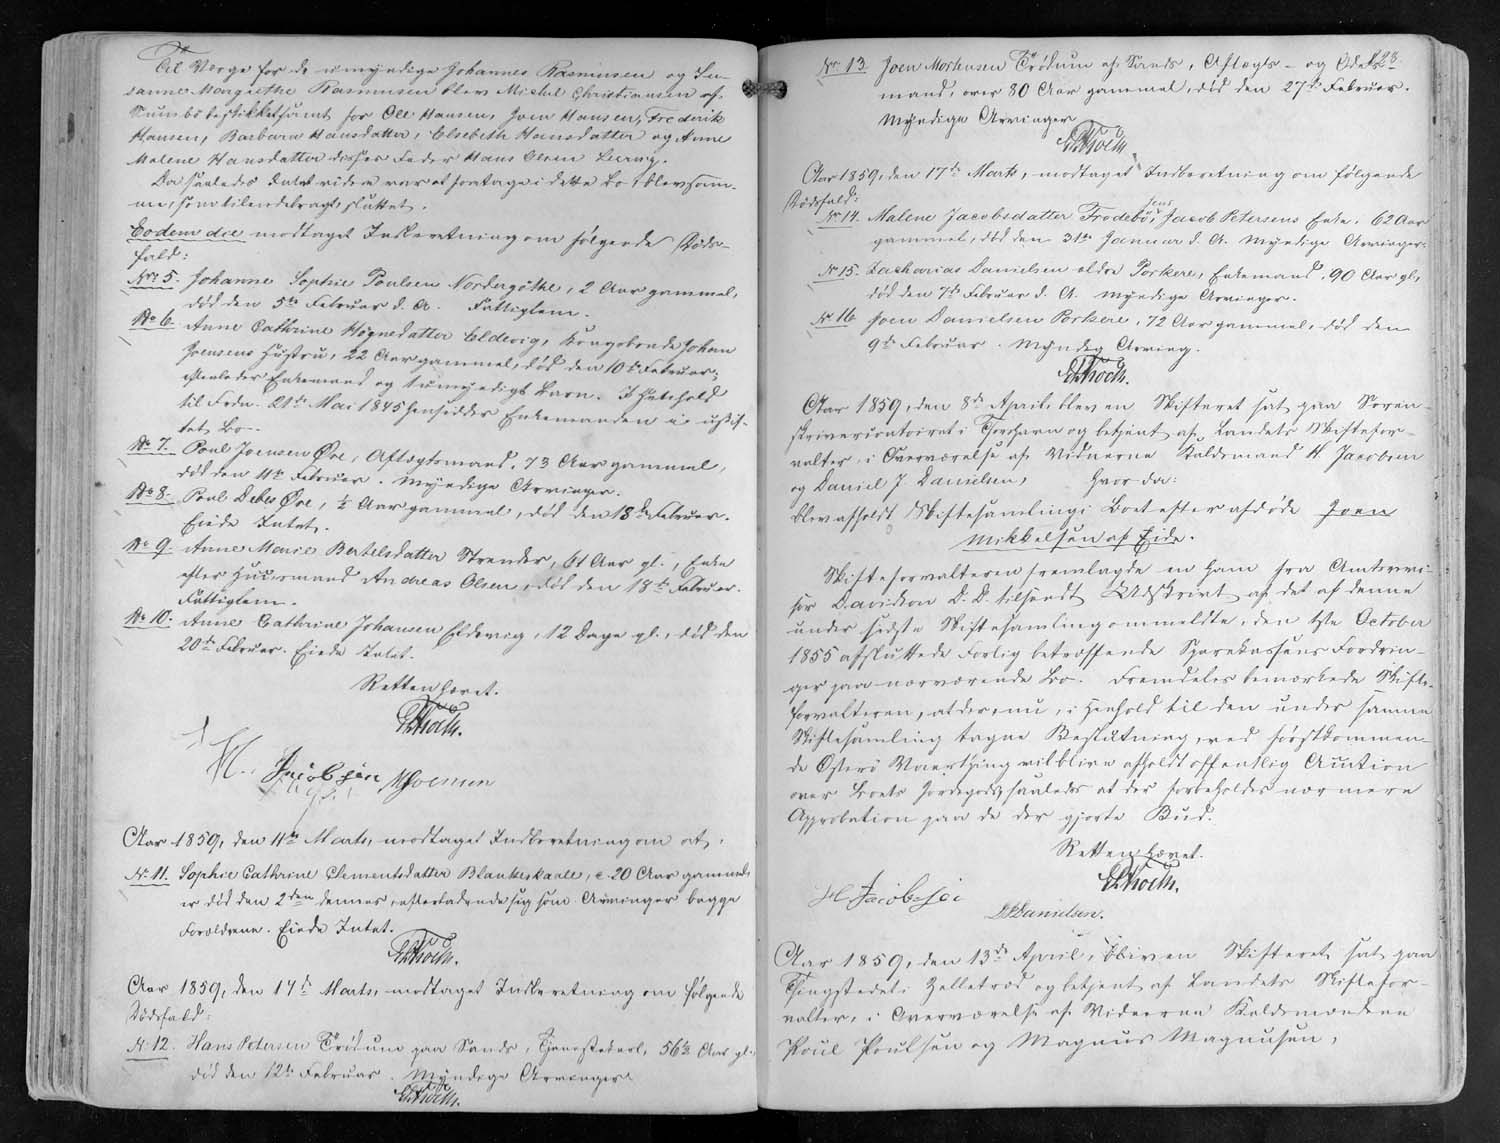 Til Verge for de umyndige Johannes Rasmussen og Su-
sanne Margrethe Rasmussen blev Michel Christiansen af
Sumbø beskikket samt for Ole Hansen, Joen Hansen, Frederik
Hansen, Barbara Hansdatter, Elsebeth Hansdatter og Anne
Malene Hansdatter disses Fader Hans Olsen
Da saaledes Intet videre var at foretage i dette Bo, blev sam-
me, som tilendebragt, sluttet.
Eodem die modtaget Indberetning om følgende Døds-
fald:
No 5. Johanne Sophie Poulsen Nordregøthe, 2 Aar gammel,
død den 5te Februar d. A. Fattiglem.
No 6. Anne Cathrine Høgnesdatter Eldevig, Kongsbonde Johan
Joensens Hustru, 22 Aar gammel, død den 10de Februar;
efterlader Enkemand og umyndigt Barn. I Henhold
til Frdn. 21de Mai 1845 hensidder Enkemanden i uskif-
tet Bo.-
No 7. Poul Joensen Øre, Aftægtsmand, 73 Aar gammel,
død den 11te Februar. Myndige Arvinger.
No 8. Poul Debes Øre, ½ Aar gammel, død den 18de Februar.
Eiede Intet.
No 9. Anne Marie Bertelsdatter Strender, 61 Aar gl., Enke
efter Huusmand Andreas Olsen, død den 18de Februar.
Fattiglem.
No 10. Anne Cathrine Johansen Eldevig, 12 Dage gl., død den
20de Februar. Eiede Intet.
Retten hævet.
H. Jacobsen MJoensen
Aar 1859, den 11te Marts, modtaget Indberetning om at,
No 11. Sophie Cathrine Clementsdatter Blankeskaale, c. 20 Aar gammel
er død den 2den dennes, efterladende sig som Arvinger begge
Forældrene. Eiede Intet.
Aar 1859, den 14de Marts, modtaget Indberetning om følgende
Dødsfald:
No 12. Hans Petersen Trødum paa Sands, Tjenestekarl, 56 Aar gl.
død den 12te Februar. Myndige Arvinger
No 13. Joen Morhusen Trødum af Sands, Aftægts- og Enke-
mand, over 80 Aar gammel, død den 27de Februar.
Myndige Arvinger
Aar 1859, den 17de Marts, modtaget Indberetning om følgende
Dødsfald:
No 14. Malene Jacobsdatter Frodebø, Jacob Petersens Enke, 62 Aar
gammel, død den 31te Januar d. A. Myndige Arvinger.
No 15. Zacharias Danielsen ældre Porkere, Enkemand, 90 Aar gl,
død den 7de Februar d. A. Myndige Arvinger.
No 16. Joen Danielsen Porkere, 72 Aar gammel, død den
9de Februar. Myndig Arving.
Aar 1859, den 8de April, blev en Skifteret sat paa Soren-
skrivercontoiret i Thorshavn og betjent af Landets Skiftefor-
valter, i Overværelse af Vidnerne Kaldsmand H. Jacobsen
og Daniel J. Danielsen, Hvor da:
blev afholdt Skiftesamling i Boet efter afdøde Joen
Mikkelsen af Eide.
Skifteforvalteren fremlagde en ham fra Amtsrevi-
sor Davidson D. D. tilsendt Udskrivt af det af denne
under sidste Skiftesamling ommeldte, den October
1855 afsluttede Forlig betræffende Sparekassens Fordrin-
ger paa nærværende Bo. Fremdeles bemærkede Skifte-
forvalteren, at der, nu, i Henhold til den under samme
Skiftesamling tagne Beslutning, ved førstkommen-
de Østerø Vaarthing vil blive afholdt offentlig Auction
over Boets Jordegods saaledes at der forbeholdes nærmere
Approbation paa de der gjorte Bud.
Retten hævet.
H. Jacobsen
DJDanielsen.
Aar 1859, den 13de April, blev en Skifteret sat paa
Thingstedet i Zelletræd og betjent af Landets Skiftefor-
valter, i Overværelse af Vidnerne Kaldsmændene
Poul Poulsen og Magnus Magnussen,